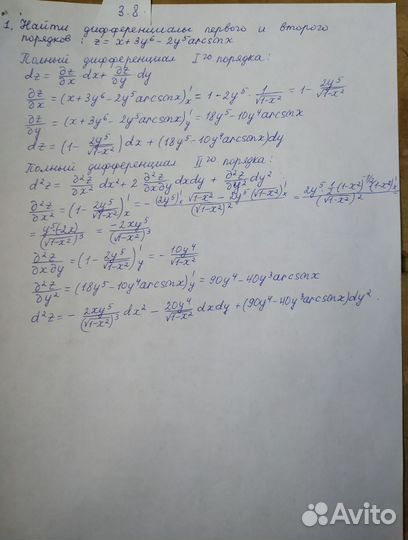 3.8.
1. Найти дифференциалы первого и второго
порядков: z = x + 3y⁶ - 2y⁵ arcsinx
Полный дифференциал I го порядка:
dz = ∂z/∂x dx + ∂z/∂y dy
∂z/∂x = (x + 3y⁶ - 2y⁵ arcsinx)'ₓ = 1 - 2y⁵ · 1/√(1-x²) = 1 - 2y⁵/√(1-x²)
∂z/∂y = (x + 3y⁶ - 2y⁵ arcsinx)'ᵧ = 18y⁵ - 10y⁴ arcsinx
dz = (1 - 2y⁵/√(1-x²)) dx + (18y⁵ - 10y⁴ arcsinx) dy
Полный дифференциал II го порядка:
d²z = ∂²z/∂x² dx² + 2 ∂²z/∂x∂y dxdy + ∂²z/∂y² dy²
∂²z/∂x² = (1 - 2y⁵/√(1-x²))'ₓ = - ((2y⁵)'ₓ √(1-x²) - 2y⁵ (√(1-x²))'ₓ)/(√(1-x²))² =
= y⁵(-2x)/(√(1-x²))³ = -2xy⁵/(√(1-x²))³
∂²z/∂x∂y = (1 - 2y⁵/√(1-x²))'ᵧ = - 10y⁴/√(1-x²)
∂²z/∂y² = (18y⁵ - 10y⁴ arcsinx)'ᵧ = 90y⁴ - 40y³ arcsinx
d²z = - 2xy⁵/(√(1-x²))³ dx² - 20y⁴/√(1-x²) dxdy + (90y⁴ - 40y³ arcsinx) dy².
Avito